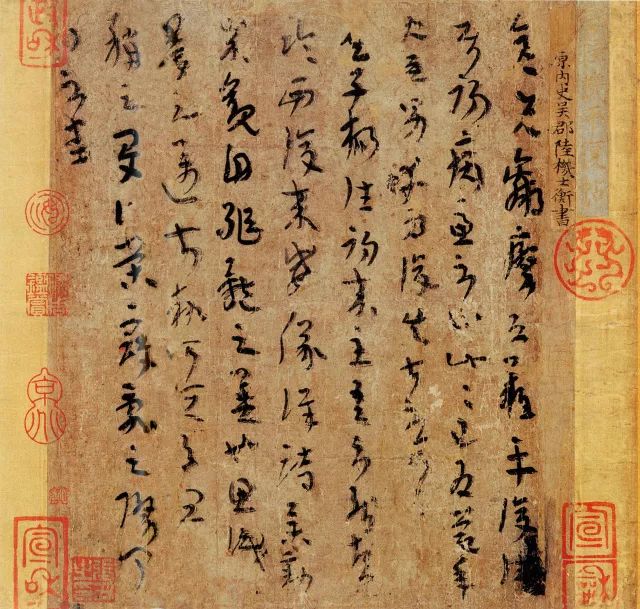 原內史吳郡陸機士衡書
彥先羸瘵恐難平復往屬
初病慮不止此此已為慶承
使男幸為復失前憂耳
子楊往初來主吾不能盡
臨西復來威儀詳跱舉動
成觀自軀體之美也思識
量之邁前執所恒有宜
稱之夏榮寇亂之際聞
問不悉
宣和
宣和